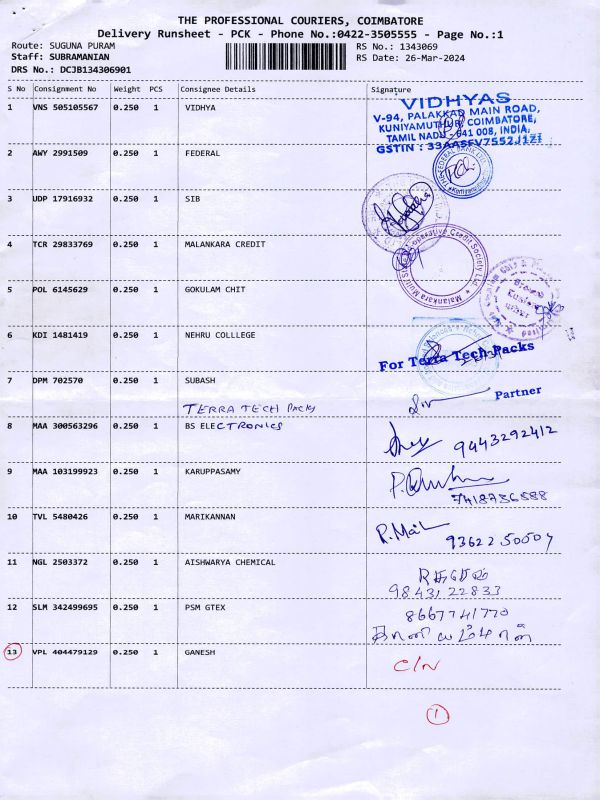 THE PROFESSIONAL COURIERS, COIMBATORE
Delivery Runsheet - PCK - Phone No.:0422-3505555 - Page No.:1
Route: SUGUNA PURAM
Staff: SUBRAMANIAN
DRS No.: DCJB134306901
RS No.: 1343069
RS Date: 26-Mar-2024
S No Consignment No Weight PCS Consignee Details Signature
1 VNS 505105567 0.250 1 VIDHYA
VIDHYAS
V-94, PALAKKAD MAIN ROAD,
KUNIYAMUTHUR, COIMBATORE,
TAMIL NADU - 641 008, INDIA,
GSTIN : 33AASFV7552J1ZI
2 AWY 2991509 0.250 1 FEDERAL
3 UDP 17916932 0.250 1 SIB
4 TCR 29833769 0.250 1 MALANKARA CREDIT
5 POL 6145629 0.250 1 GOKULAM CHIT
6 KDI 1481419 0.250 1 NEHRU COLLLEGE
For Terra Tech Packs
7 DPM 702570 0.250 1 SUBASH
Partner
TERRA TECH Packs
8 MAA 300563296 0.250 1 BS ELECTRONICS
9443292412
9 MAA 103199923 0.250 1 KARUPPASAMY
7418736588
10 TVL 5480426 0.250 1 MARIKANNAN
11 NGL 2503372 0.250 1 AISHWARYA CHEMICAL
98431 22833
12 SLM 342499695 0.250 1 PSM GTEX
8667741770
13 VPL 404479129 0.250 1 GANESH
C/N
1